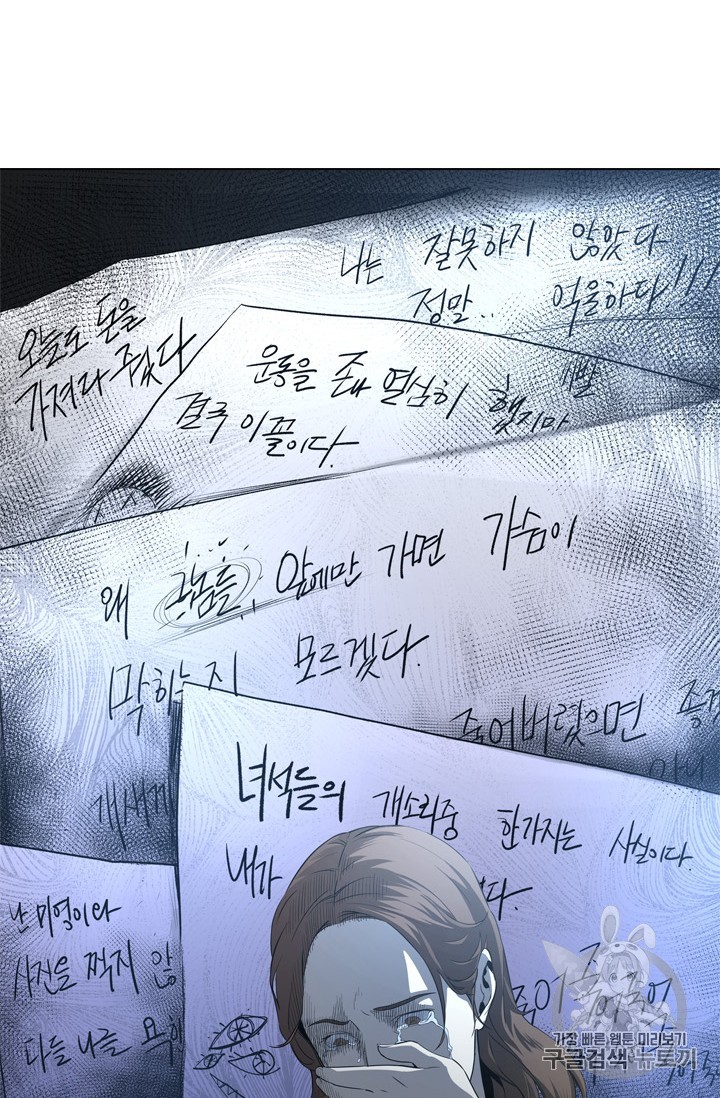 나는 잘못하지 않았다
정말.. 억울하다!!!
오늘도 돈을
가져라 주겠다
운동을 존나 열심히 했지만
결국 이꼴이다.
왜 그놈들, 앞에만 가면 가슴이
막히는지 모르겠다.
죽어버렸으면
개새끼
녀석들의 개소리중 한가지는 사실이다.
내가
다.
난 미역이라
사진을 찍지 않
다들 나를 욕
죽어 죽어 죽어
가장 빠른 웹툰 미리보기
구글검색 뉴토끼